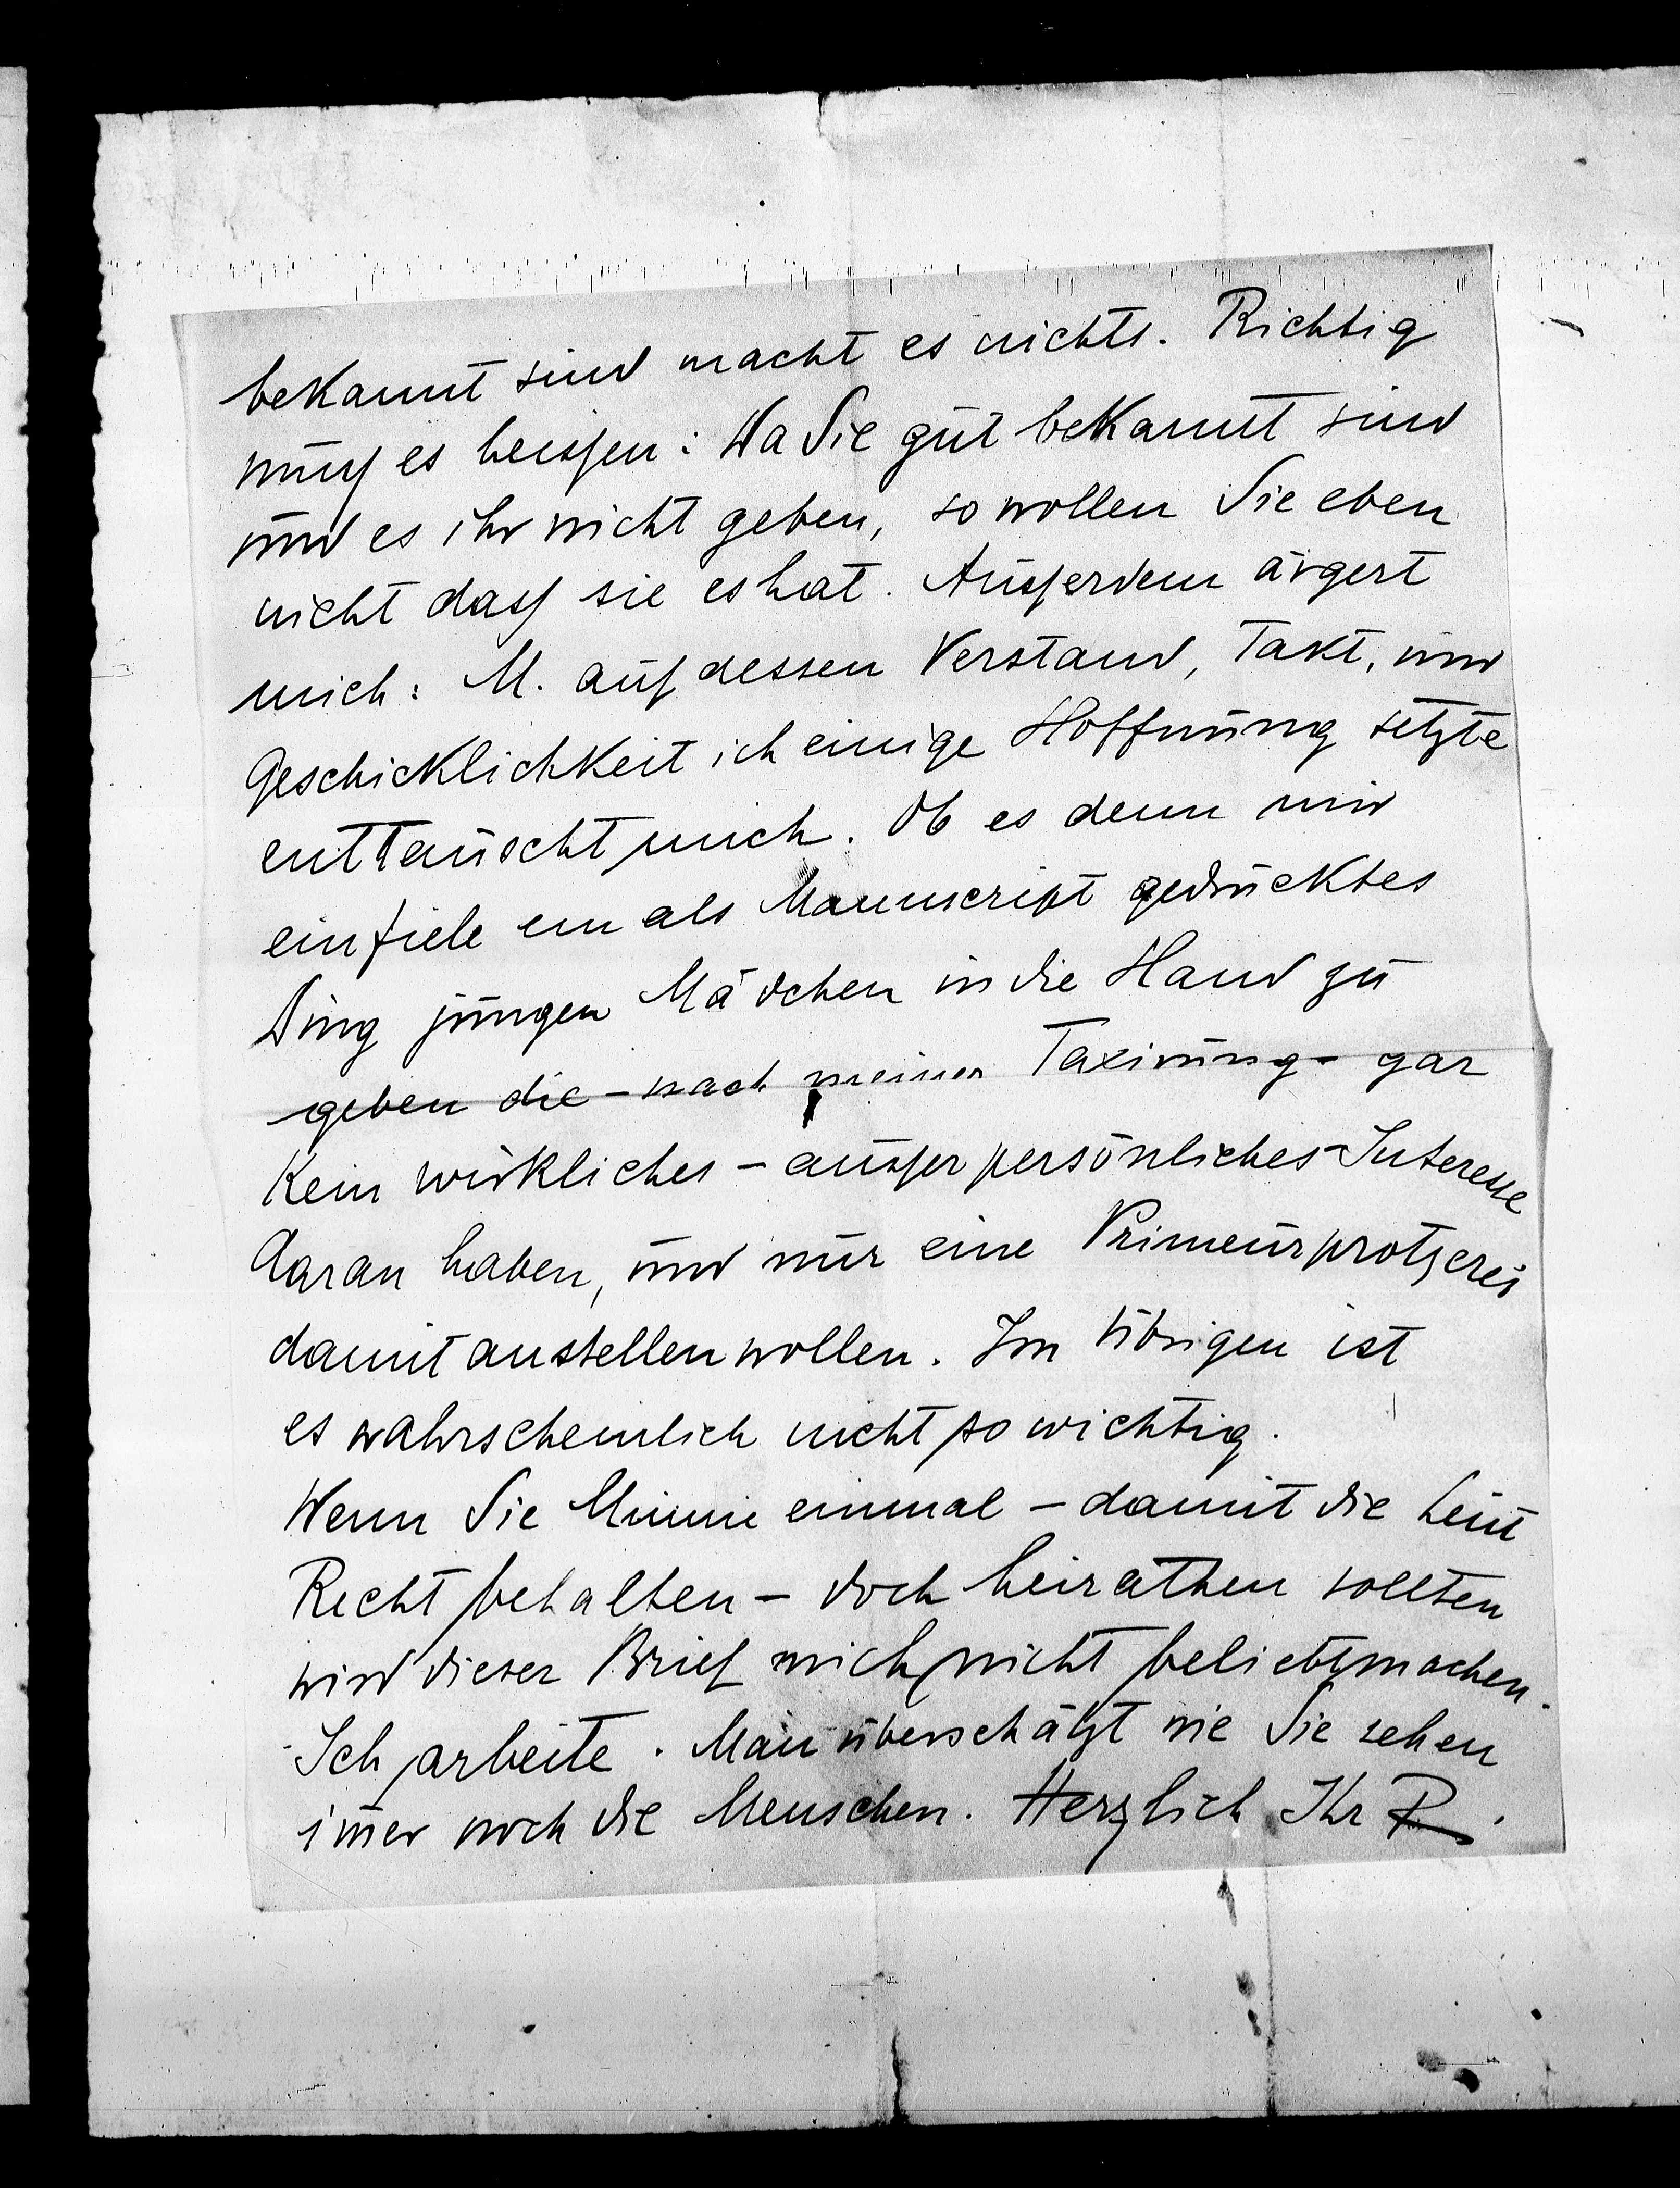 bekannt sind macht es nichts. Richtig
muß es heißen: Da Sie gut bekannt sind
und es ihr nicht geben, so wollen Sie eben
nicht daß sie es hat. Außerdem ärgert
mich: M. auf dessen Verstand, Takt, und
Geschicklichkeit ich einige Hoffnung setzte
enttäuscht mich. Ob es denn mir
einfiele ein als Manuscript gedrucktes
Ding jungen Mädchen in die Hand zu
geben die – nach meiner Taxirung – gar
kein wirkliches – außer persönliches Interesse
daran haben, und nur eine Primeurprotzerei
damit anstellen wollen. Im Übrigen ist
es wahrscheinlich nicht so wichtig.
Wenn Sie Minnie einmal – damit die Leut
Recht behalten – doch heirathen sollten
wird dieser Brief mich nicht beliebt machen.
Ich arbeite. Man überschätzt wie Sie sehen
im̅er noch die Menschen. Herzlich Ihr R